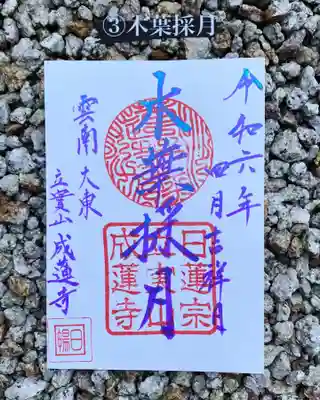 ③木葉採月
令和六年
四月吉祥日
木葉採月
雲南 大東
立雲山 成蓮寺
日蓮宗
成蓮寺